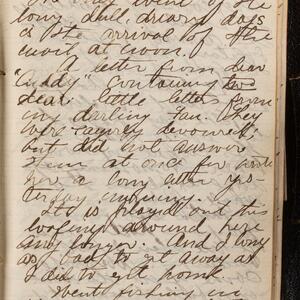 long, dull, dreary days
is the arrival of the
mail at noon.
A letter from dear
"Cuddy" containing two
dear little letters from
my darling Fan. They
were eagerly devoured;
but did not answer
them at once for wrote
her a long letter yes-
terday morning.
It is played out this
loafing around here
any longer. And I long
as I had to get away as
I did to get home.
Went fishing in